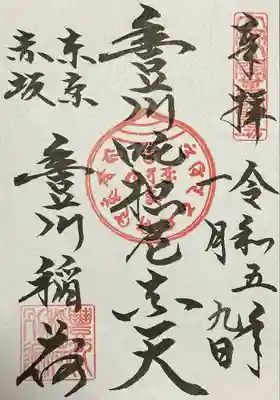 奉拝
令和五年
一月九日
豊川吒枳尼真天
東京
赤坂
豊川稲荷